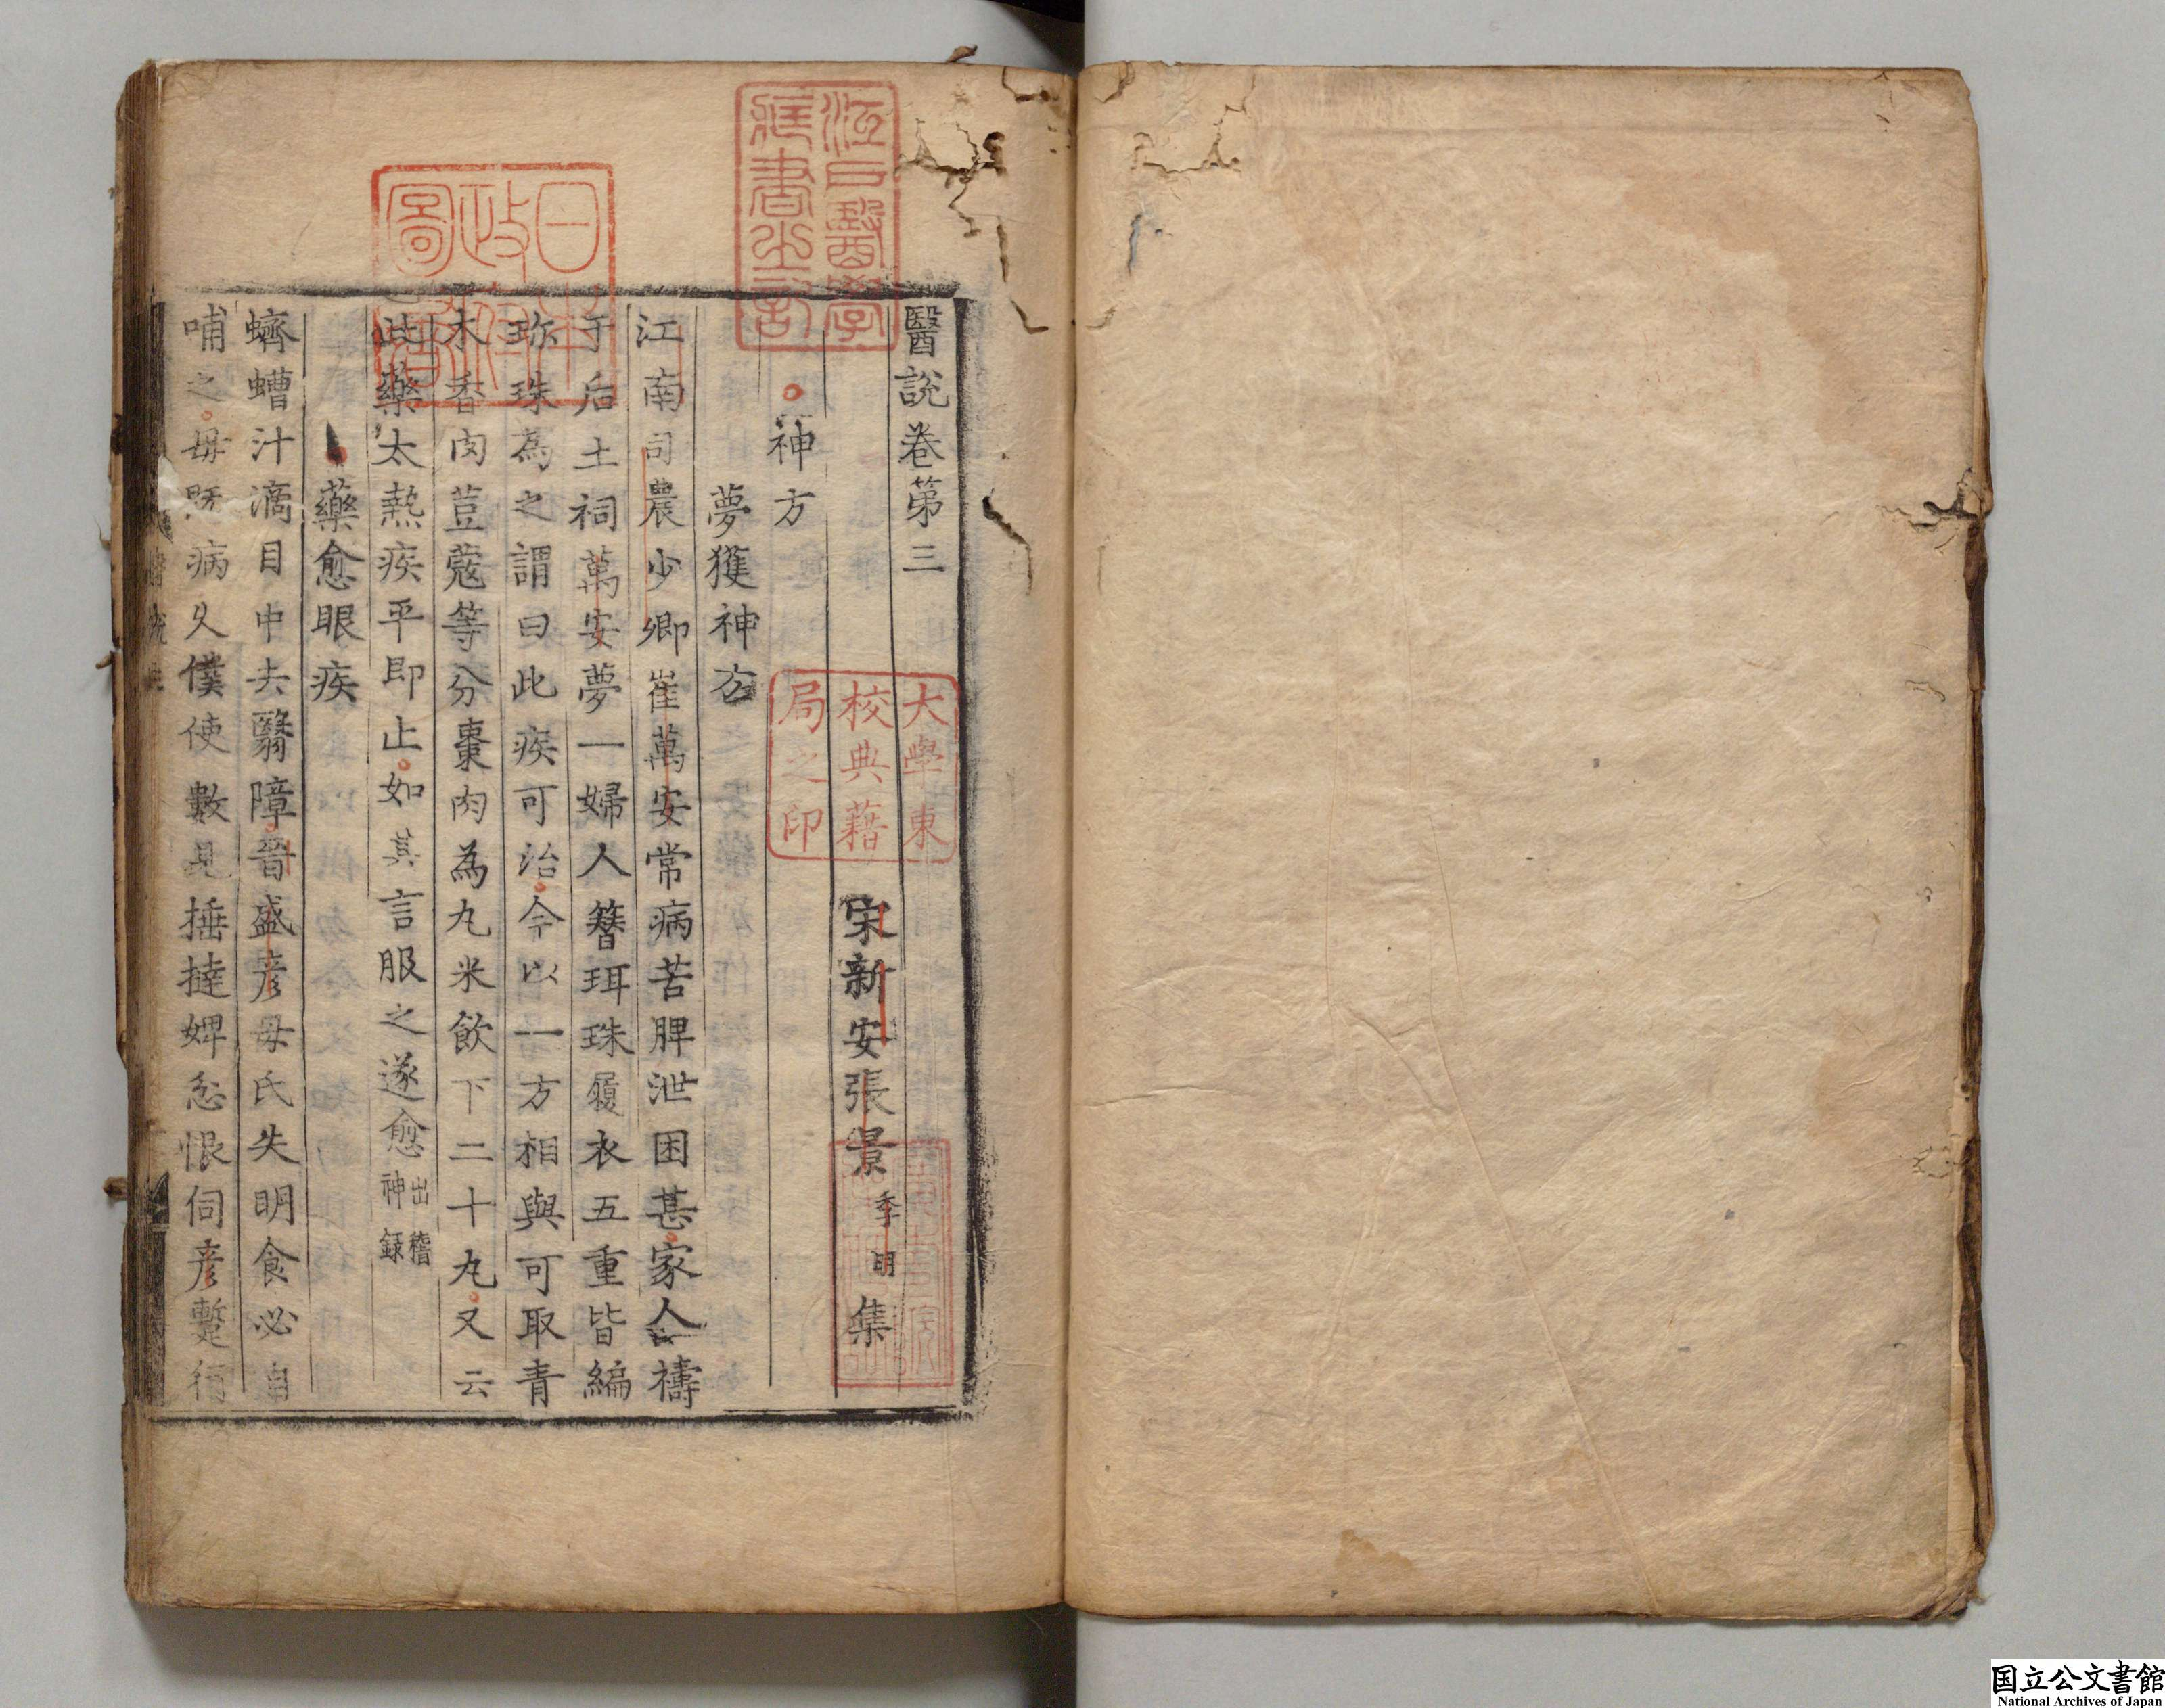 醫說卷第三
宋新安張景季明集
神方
夢獲神方
江南司農少卿崔萬安常病苦脾泄困甚家人禱
于后土祠萬安夢一婦人簪珥珠履衣五重皆編
珎珠為之謂曰此疾可治今以一方相與可取青
木香肉荳蔻等分棗肉為丸米飲下二十丸又云
此藥太熱疾平即止如其言服之遂愈出稽神録
藥愈眼疾
蠐螬汁滴目中去翳障晉盛彦母氏失明食必自
哺之母既病久僕使數見捶撻婢忿恨伺彦蹔行
江戸醫學藏書之記
日本政府圖書
大學東校典藉局之印
国立公文書館
National Archives of Japan